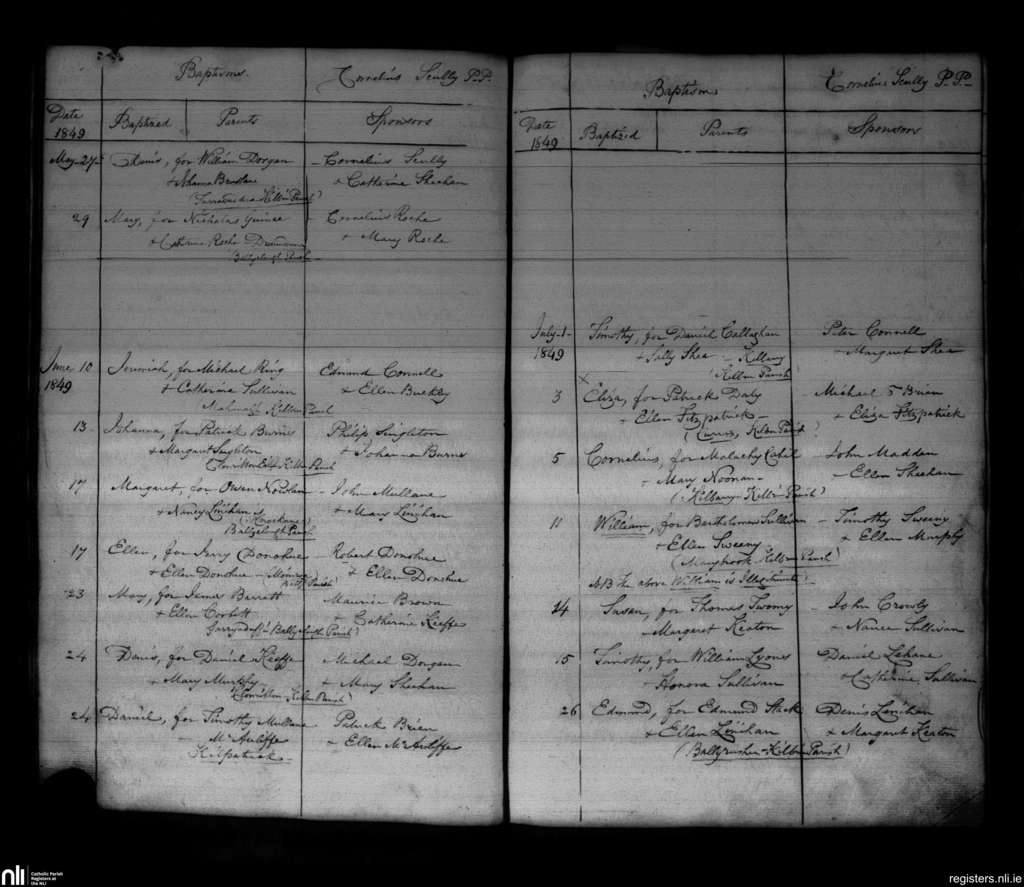 Baptisms Cornelius Scully P.P.
Date 1849 Baptized Parents Sponsors
May 27 Denis, for William Dorgan - Cornelius Scully
+ Johanna + Catherine Sheehan
Parish)
29 Mary, for Nicholas Guinee + Cornelius Roche
+ Catherine Roche + Mary Roche
Parish
June 10 Jeremiah, for Michael Ring Edmund Connell
1849 + Catherine Sullivan + Ellen Buckley
Parish
13 Johanna, for Patrick Burns Philip Singleton
+ Margaret Singleton + Johanna Burns
Parish
17 Margaret, for Owen - John Mullane
+ Nancy Linihan + Mary Linihan
Parish
17 Ellen, for Jerry Donohue Robert Donohue
+ Ellen Donohue + Ellen Donohue
Parish)
23 Mary, for James Barrett Maurice Brown
+ Ellen Corbett + Catherine Keeffe
Parish)
24 Denis, for Daniel Keeffe Michael Dorgan
+ Mary Murphy + Mary Sheehan
Parish)
24 Daniel, for Timothy Mullane Patrick Brien
- McAuliffe - Ellen McAuliffe
Kilpatrick
Baptisms Cornelius Scully P.P.
Date 1849 Baptized Parents Sponsors
July 1 Timothy, for Daniel Callaghan Peter Connell
1849 + Sally Shea - + Margaret Shea
Parish)
x
3 Eliza, for Patrick Daly - Michael O Brien
- Ellen Fitzpatrick - + Eliza Fitzpatrick
Parish)
5 Cornelius, for Malachy Cahil - John Madden
- Mary Noonan - - Ellen Sheehan
Parish)
11 William, for Bartholomew Sullivan - Timothy Sweeny
+ Ellen Sweeny + Ellen Murphy
(Marybrook Parish)
NB The above William is Illegitimate
14 Susan, for Thomas Twomy - John Crowly
- Margaret Keaton - Nance Sullivan
15 Timothy, for William Lyons Daniel Lehane
- Honora Sullivan + Catherine Sullivan
26 Edmund, for Edmund Stack Denis Linihan
+ Ellen Linihan + Margaret Keaton
Parish)
nli Catholic Parish Registers at the NLI
registers.nli.ie